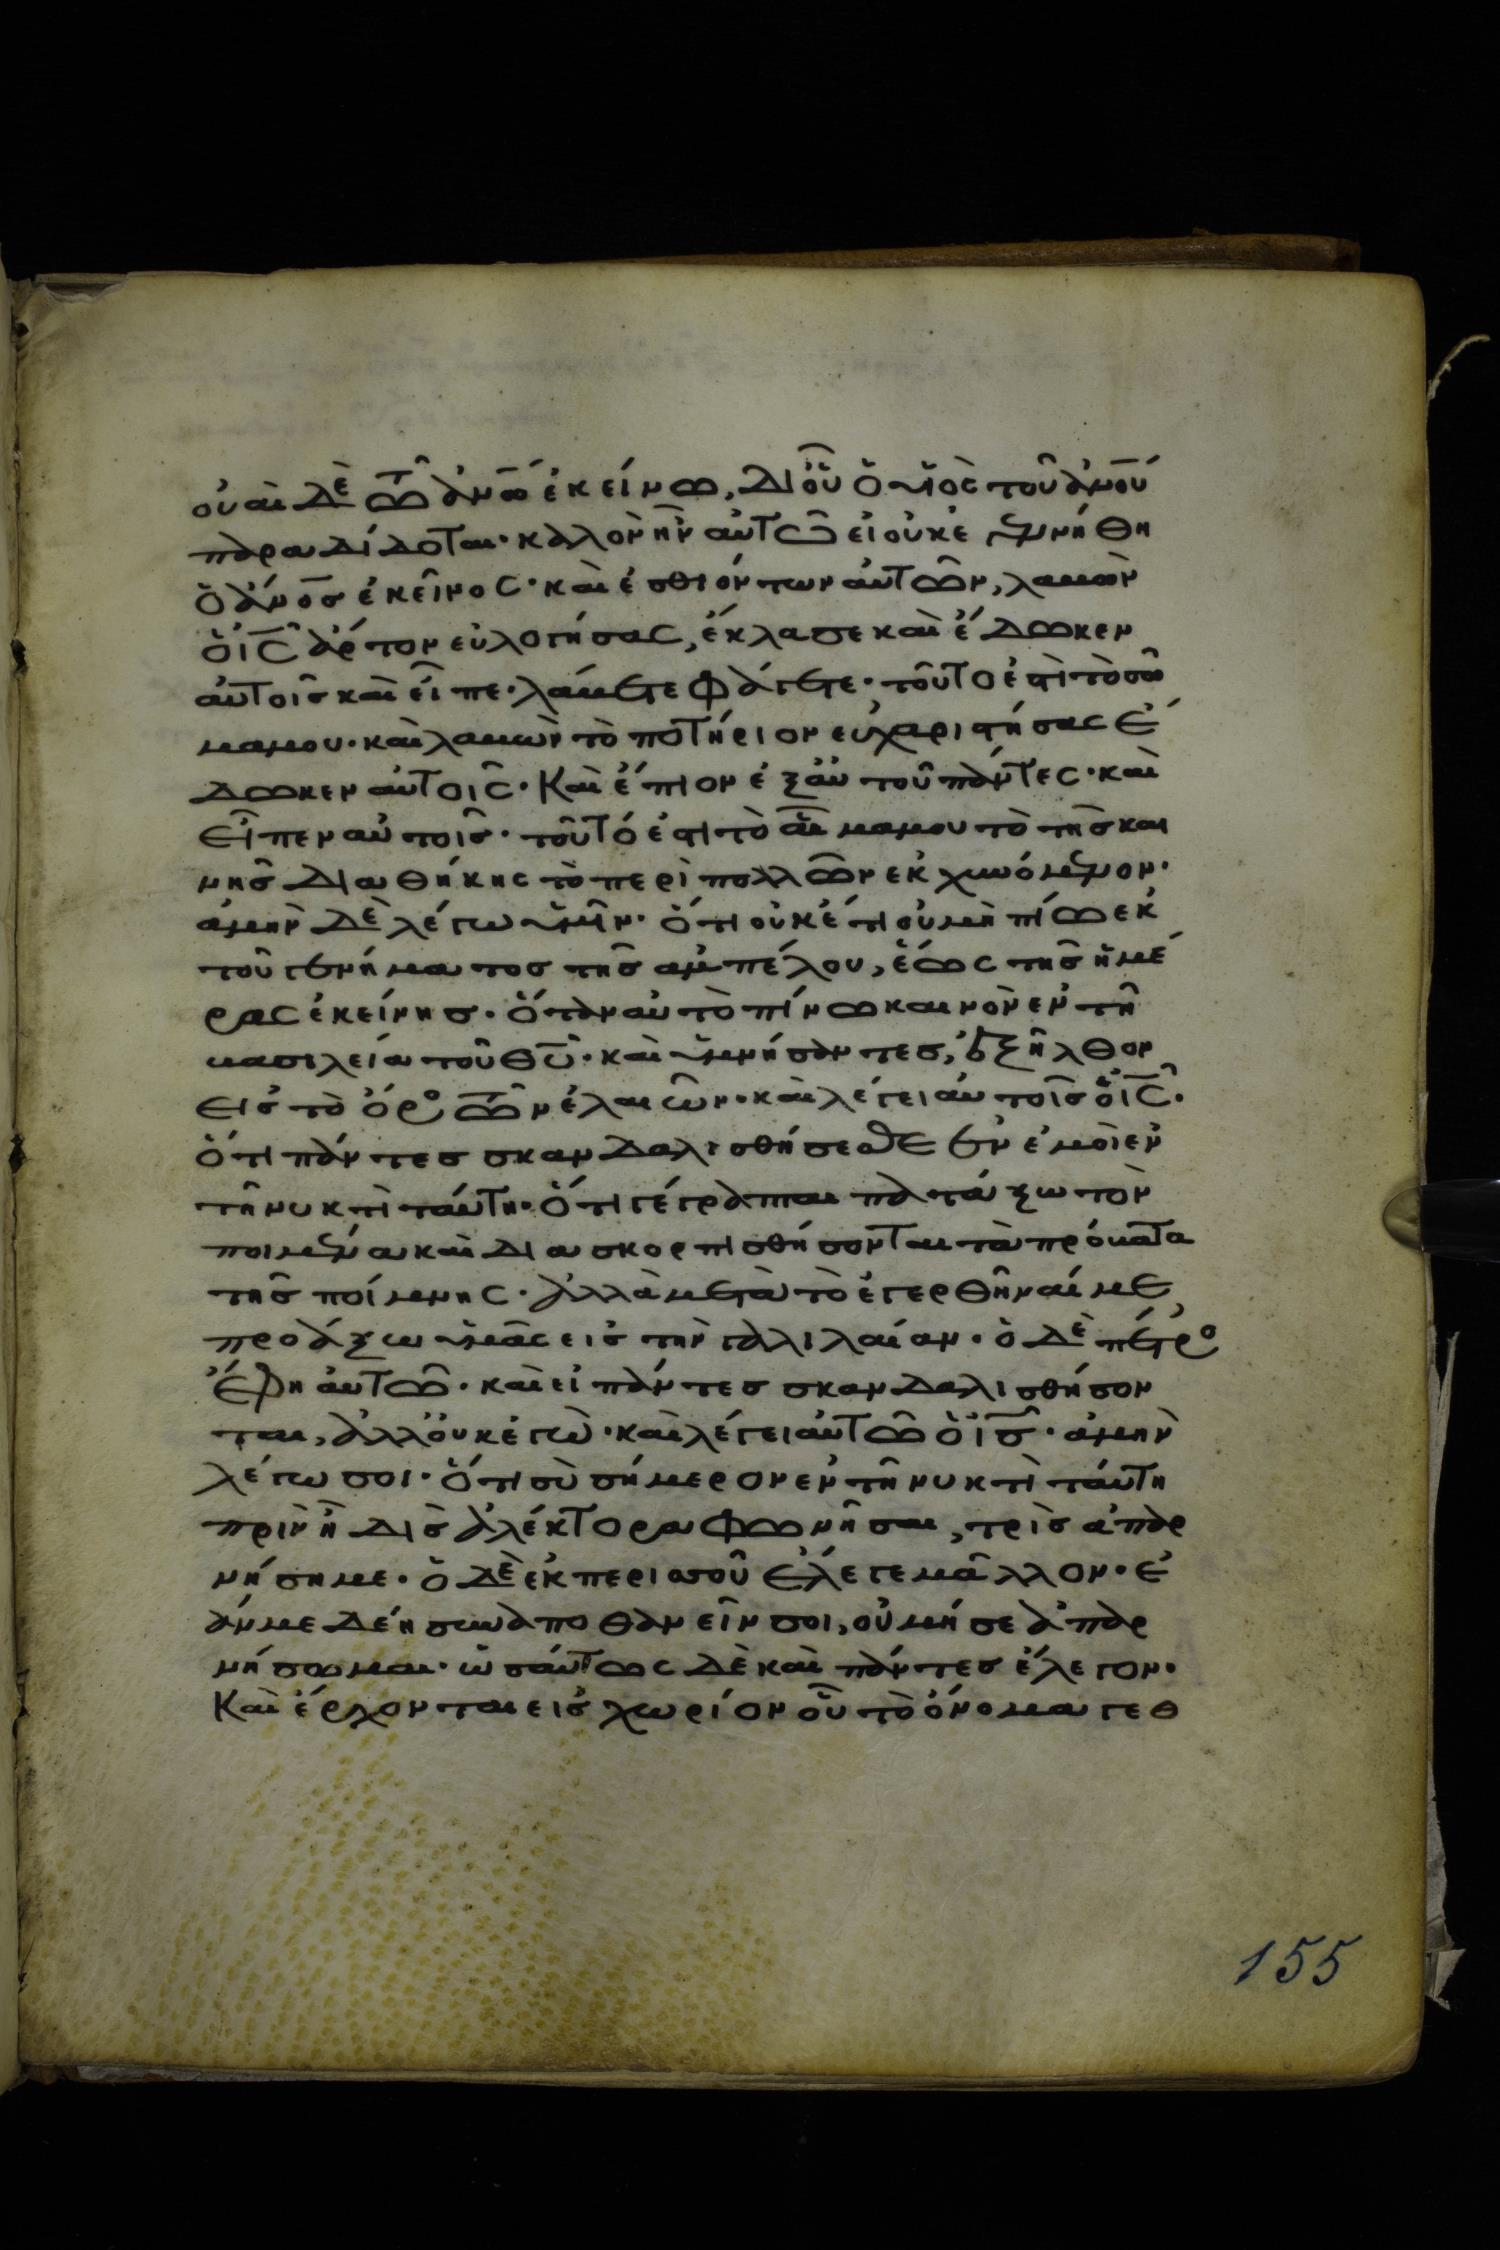 οὐαὶ δὲ τῶ ἀν̅ω̅ ἐκείνω, δι' οὗ ὁ υἱὸς τοῦ ἀν̅ο̅ῦ
παραδίδοται· καλὸν ἦν αὐτῶ εἰ οὐκ ἐγεννήθη
ὁ ἀν̅ο̅σ̅ ἐκεῖνος· καὶ ἐσθιόντων αὐτῶν, λαβὼν
ὁ ι̅ς̅ ἄρτον εὐλογήσας, ἔκλασε καὶ ἔδωκεν
αὐτοῖς καὶ εἶπε· λάβετε φάγετε· τοῦτο ἐστὶ τὸ σῶ
μα μου· καὶ λαβὼν τὸ ποτήριον εὐχαριστήσας ἔ
δωκεν αὐτοῖς· Καὶ ἔπιον ἐξ αὐτοῦ πάντες· καὶ
εἶπεν αὐτοῖς· τοῦτό ἐστι τὸ αἷμα μου τὸ τῆς και
νῆς διαθήκης τὸ περὶ πολλῶν ἐκχυνόμενον·
ἀμὴν δὲ λέγω ὑμῖν· ὅτι οὐκέτι οὐ μὴ πίω ἐκ
τοῦ γεννήματος τῆς ἀμπέλου, ἕως τῆς ἡμέ
ρας ἐκείνης· ὅταν αὐτὸ πίνω καινὸν ἐν τῆ
βασιλεία τοῦ θ̅υ̅· καὶ ὑμνήσαντες, ἐξῆλθον
εἰς τὸ ὄρος τῶν ἐλαιῶν· καὶ λέγει αὐτοῖς ὁ ι̅ς̅·
ὅτι πάντες σκανδαλισθήσεσθε ἐν ἐμοὶ ἐν
τῆ νυκτὶ ταύτη· ὅτι γέγραπται πατάξω τὸν
ποιμένα καὶ διασκορπισθήσονται τὰ πρόβατα
τῆς ποίμνης· ἀλλὰ μετὰ τὸ ἐγερθῆναί με,
προάξω ὑμᾶς εἰς τὴν γαλιλαίαν· ὁ δὲ πέτρος
ἔφη αὐτῶ· καὶ εἰ πάντες σκανδαλισθήσον
ται, ἀλλ' οὐκ ἐγὼ· καὶ λέγει αὐτῶ ὁ ι̅ς̅· ἀμὴν
λέγω σοι· ὅτι σὺ σήμερον ἐν τῆ νυκτὶ ταύτη
πρὶν ἢ δὶς ἀλέκτορα φωνῆσαι, τρὶς ἀπαρ
νήση με· ὁ δὲ ἐκπερισσοῦ ἔλεγε μᾶλλον· ἐ
άν με δέη συναποθανεῖν σοι, οὐ μή σε ἀπαρ
νήσωμαι· ὡσαύτως δὲ καὶ πάντες ἔλεγον·
Καὶ ἔρχονται εἰς χωρίον οὗ τὸ ὄνομα γεθ
155